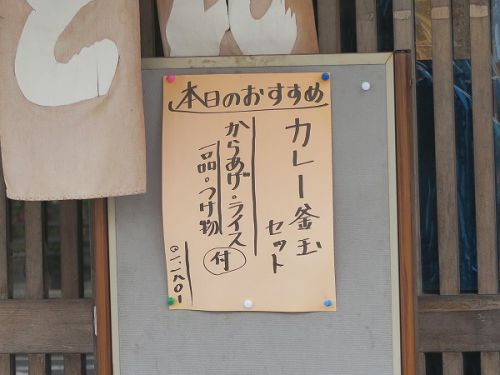 本日のおすすめ
カレー釜玉
セット
からあげ・ライス
一品・つけ物
付